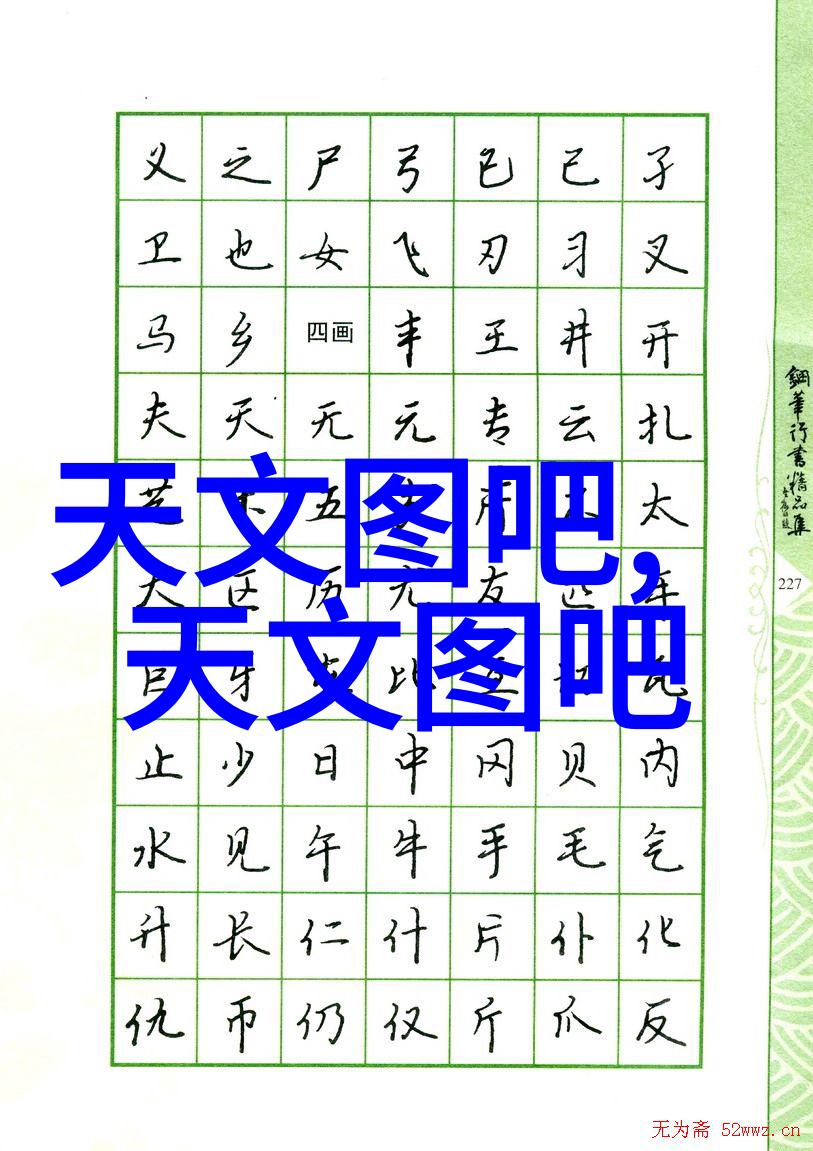 义 之 尸 弓 己 已 子
卫 也 女 飞 刃 习 叉
马 乡 四画 丰 王 井 开
夫 天 无 元 专 云 扎
艺 木 五 支 厅 不 太
犬 区 历 尤 友 匹 车
巨 牙 屯 比 互 切 瓦
止 少 日 中 冈 贝 内
水 见 午 牛 手 毛 气
升 长 仁 什 片 仆 化
仇 币 仍 仅 斤 爪 反
天文图吧,
天文图吧
钢笔行书精品集
227
无为斋 52wwz.cn